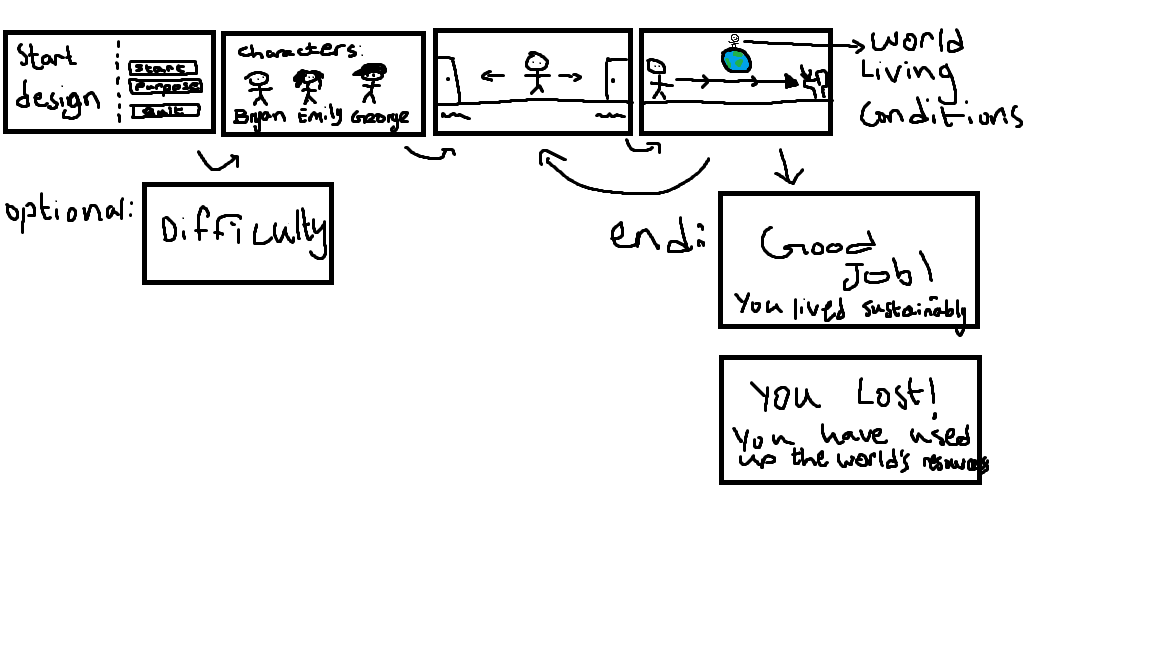 Start
design
Start
Purpose
Quit
Characters:
Bryan Emily George
World
Living
Conditions
optional:
Difficulty
end:
Good
Job!
You lived sustainably
You Lost!
You have used
up the world's resources